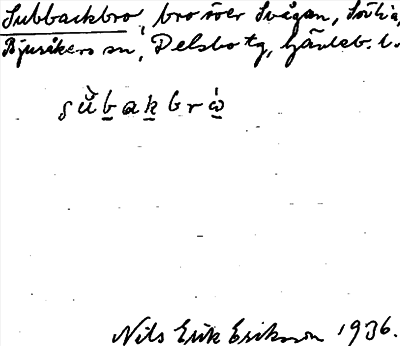 Subbackbro, bro över Svågan, Sörlia,
Bjuråkers sn, Delsbo tg, Gävleb. l.
sùbakbrȯ
Nils Erik Eriksson 1936.